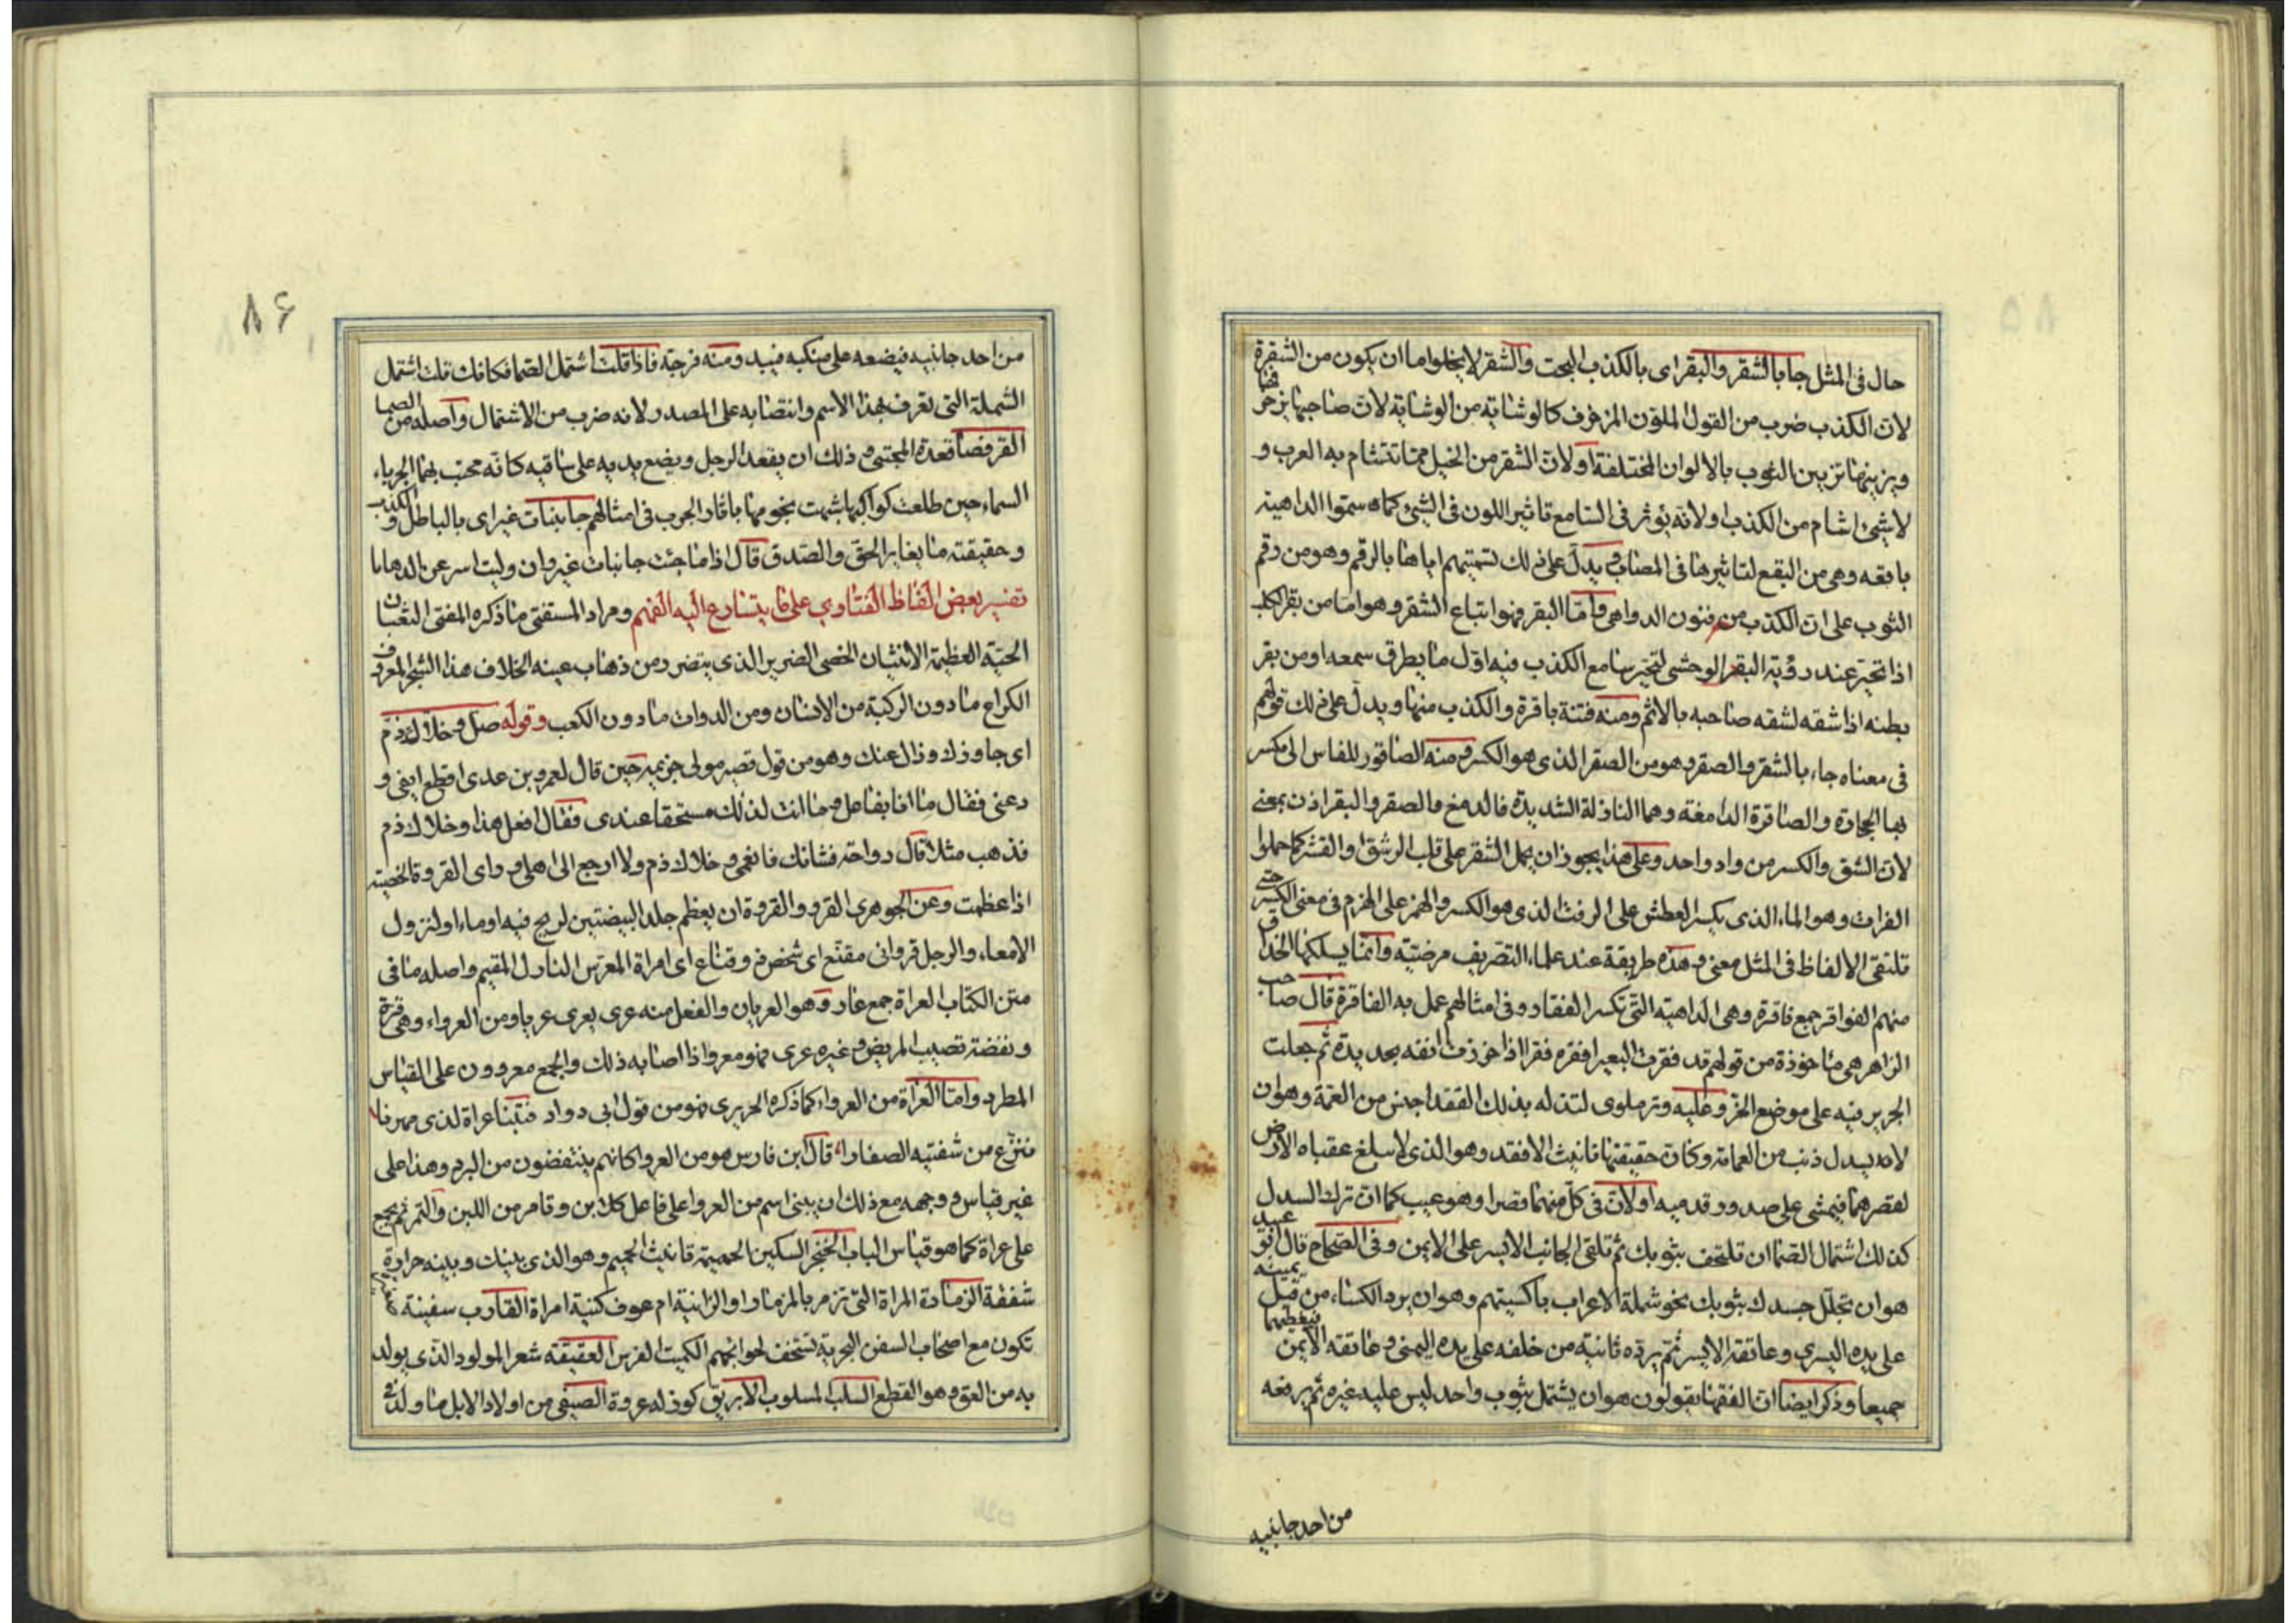 حال فى المثل جا بالشقر والبقر اى بالكذب البحت والشقر لا يخلوا ما ان يكون من الشقرة
لان الكذب ضرب من القول الملون المزخرف كالوشاية من الوشاية لان صاحبها يزخرفها
ويزينها تزيين الثوب بالالوان المختلفة او لان الشقر من الخيل مما تتشام به العرب و
لا شيئ اشام من الكذب او لانه يؤثر فى السامع تاثير اللون فى الشيئ كما سموا الداهية
باقعه وهى من البقع لتاثيرها فى المصاب يدل على ذلك تسميتهم اياها بالرقم وهو من رقم
الثوب على ان الكذب من فنون الدواهى واما البقر فهو اتباع الشقر وهو اما من بقر الكلب
اذا تحير عند رؤية البقر الوحشى لتحير سامع الكذب فيه اول ما يطرق سمعه او من بقر
بطنه اذا شقه لشقه صاحبه بالاثم ومنه فتنة باقرة والكذب منها ويدل على ذلك قولهم
فى معناه جاء بالشقر والصقر وهو من الصقر الذى هو الكسر ومنه الصاقور للفاس التى يكسر
بها الحجارة والصاقرة الدامغة وهما النازلة الشديدة فالدمغ والصقر والبقر اذن بمعنى
لان الشق والكسر من واد واحد وعلى هذا يجوز ان يحمل الشقر على قلب الرشق او القشر كما حملوا
الفرات وهو الماء الذى يكسر العطش على الرفت الذى هو الكسر والهمز على الهزم فى معنى الكسر حتى
تلتقى الالفاظ فى المثل معنى وهذه طريقة عند علماء التصريف مرضية وانما يسلكها الحذاق
منهم الفواقر جمع فاقرة وهى الداهية التى تكسر الفقار وفى امثالهم عمل به الفاقرة قال صاحب
الزاهر هى ماخوذة من قولهم قد فقرت البعير افقره فقرا اذا خززت انفه بحديدة ثم جعلت
الجرير فيه على موضع الحز وعليه وتر ملوى لتذله بذلك الفقدا جنس من العمة وهو ان
لا يسدل ذنب من العمامة وكان حقيقتها تانيث الافقد وهو الذى لا يبلغ عقباه الارض
لقصرهما فيمشى على صدور قدميه او لان فى كل منهما قصرا وهو عيب كما ان ترك السدل
كذلك اشتمال الصما ان تلتحف بثوبك ثم تلقى الجانب الايسر على الايمن وفى الصحاح قال ابو عبيد
هو ان تجلل جسدك بثوبك نحو شملة الاعراب باكسيتهم وهو ان يرد الكساء من قبل يمينه
على يده اليسرى وعاتقه الايسر ثم يرده ثانية من خلفه على يده اليمنى وعاتقه الايمن فيغطيهما
جميعا وذكر ايضا ان الفقها يقولون هو ان يشتمل بثوب واحد ليس عليه غيره ثم يرفعه
من احد جانبيه
۸۶
من احد جانبيه فيضعه على منكبه فيبد ومنه فرجة فاذا قلت اشتمل الصما فكانك قلت اشتمل
الشملة التى تعرف بهذا الاسم وانتصابه على المصدر لانه ضرب من الاشتمال واصله من الصما
القرفصا قعدة المحتبى وذلك ان يقعد الرجل ويضع يديه على ساقيه كانه محتب بهما الجرباء
السماء حين طلعت كواكبها شبهت نجومها باثار الجرب فى امثالهم جا ببنات غير اى بالباطل والكذب
وحقيقته ما يغاير الحق والصدق قال اذا ما جئت جا ببنات غير وان وليت اسرعن الذهابا
تفسير بعض الفاظ الفتاوى على ما يتسارع اليه الفهم ومراد المستفتى ما ذكره المفتى الثعبان
الحية العظيمة الانثيان الخصى الضرير الذى يتضرر من ذهاب عينه الخلاف هذا الشجر المعروف
الكراع ما دون الركبة من الانسان ومن الدواب ما دون الكعب وقوله صل وخلاك ذم
اى جاوزك وزال عنك وهو من قول قصير مولى جذيمة حين قال لعمرو بن عدى اقطع انفى و
دعنى فقال ما انا بفاعل وما انت لذلك مستحقا عندى فقال افعل هذا وخلاك ذم
فذهب مثلا قال رواحة فشانك فانعمى وخلاك ذم ولا ارجع الى اهلى وراى القروة الخصية
اذا عظمت وعن الجوهرى القرو والقروة ان يعظم جلد البيضتين لريح فيه او ماء او لنزول
الامعاء والرجل قروانى مقنع اى شخص وقناع اى امراة المعرس النازل المقيم واصله ما فى
متن الكتاب العراة جمع عار وهو العريان والفعل منه عرى يعرى عريا ومن العرواء وهى قرة
ونفضة تصيب المريض وغيره عرى فهو معرو اذا اصابه ذلك والجمع معروون على القياس
المطرد واما العراة من العرواء كما ذكره الحريرى فهو من قول ابى دواد فبتنا عراة لدى مهرنا
ننزع من شفتيه الصفارا قال ابن فارس هو من العروا كانهم ينتفضون من البرد وهذا على
غير قياس ووجهه مع ذلك ان يبنى اسم من العروا على فاعل كلابن وتامر من اللبن والتمر ثم يجمع
على عراة كما هو قياس الباب الخنجر السكين الحميمة تانيث الحميم وهو الذى بينك وبينه حرارة
شفقة الزمارة المراة التى تزمر بالمزمار او الزانية ام عوف كنية امراة القارب سفينة
تكون مع اصحاب السفن البحرية تستخف لحوائجهم الكميت الفرس العقيقة شعر المولود الذى يولد
به من العق وهو القطع السلب المسلوب الابريق كوز له عروة الصيفى من اولاد الابل ما ولد فى